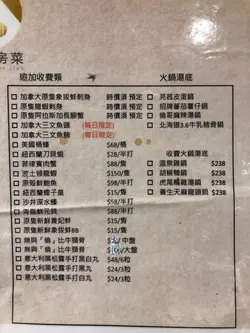 房菜
追加收費類
加拿大原隻象拔蚌刺身 時價須 預定
原隻龍蝦刺身 時價須 預定
原隻阿拉斯加長腳蟹 時價須 預定
加拿大三文魚頭 (每日限定)
加拿大三文魚腩 (每日限定)
美國桶蠔 $68/
紐西蘭刀貝蜆 $28/半打
菲律賓肉蟹
波士頓龍蝦 $150/隻
原板鮮鮑魚 $98/半打
紐西蘭蟶子皇 $15/隻
沙井深水蠔 $58/半打
青島鮮元貝 $38/半打
原隻新鮮貴妃蚌 $15/隻
原隻新鮮象拔蚌BB $15/隻
無與「倫」比牛頸脊 /中盤
無與「倫」比牛頸脊 /大盤
意大利黑松露手打黑白丸 $48/6粒
意大利黑松露手打白丸 $24/3粒
意大利黑松露手打黑丸 $24/3粒
火鍋湯底
芫茜皮蛋鍋
招牌蕃茄薯仔鍋
倫哥麻辣湯鍋
北海道3.6牛乳豬骨鍋
收費火鍋湯底
花膠雞鍋 $238
胡椒豬肚鍋 $238
虎尾橘雞湯鍋 $238
養生天麻雞頭鍋 $238